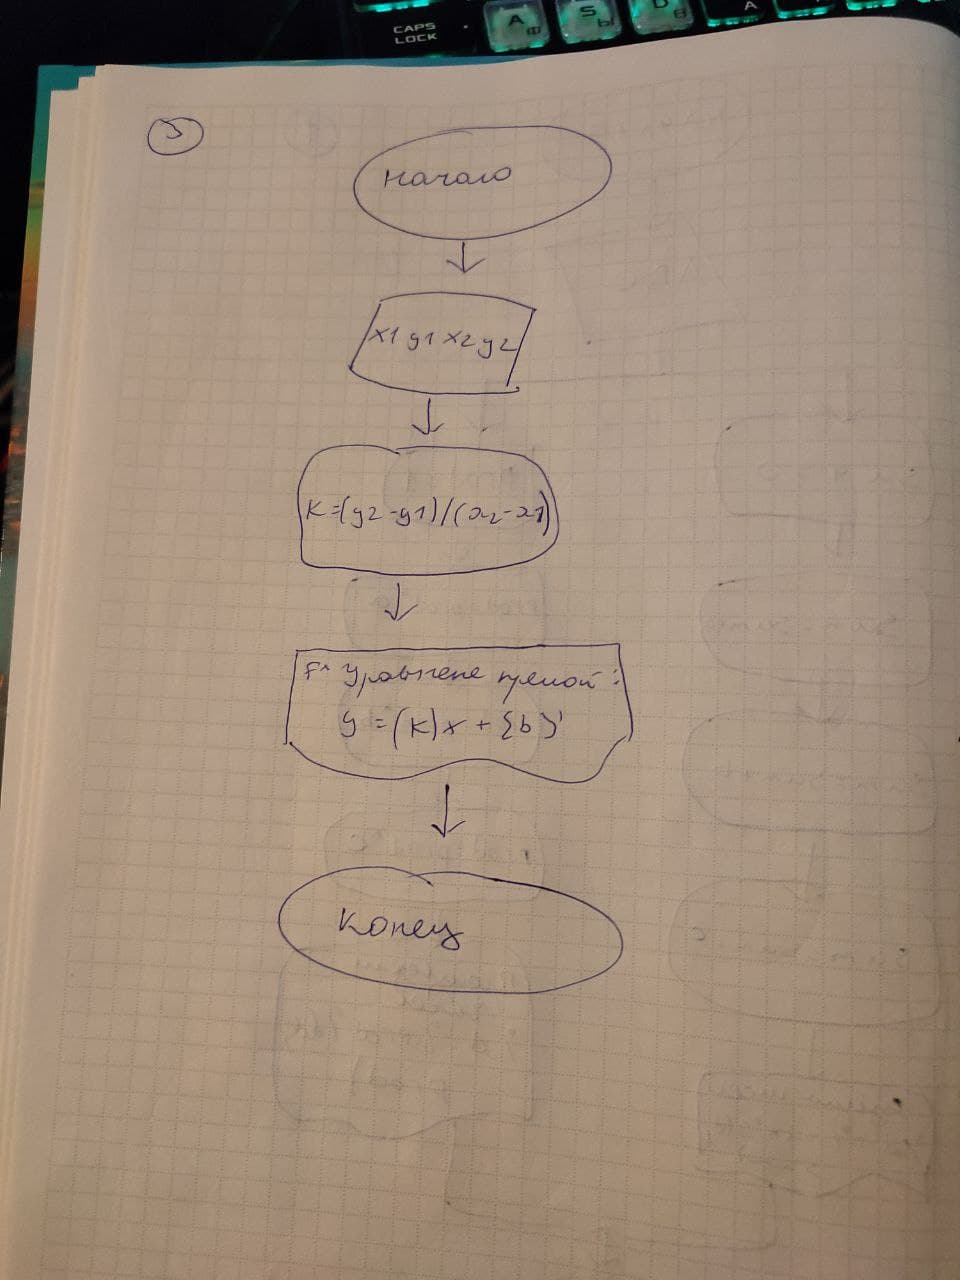 CAPS
LOCK
A
Ф
S
Ы
D
В
А
3
Начало
x1 y1 x2 y2
K=(y2-y1)/(x2-x1)
F" Уравнене прямой:
y = (K)x + {b}'
Конец